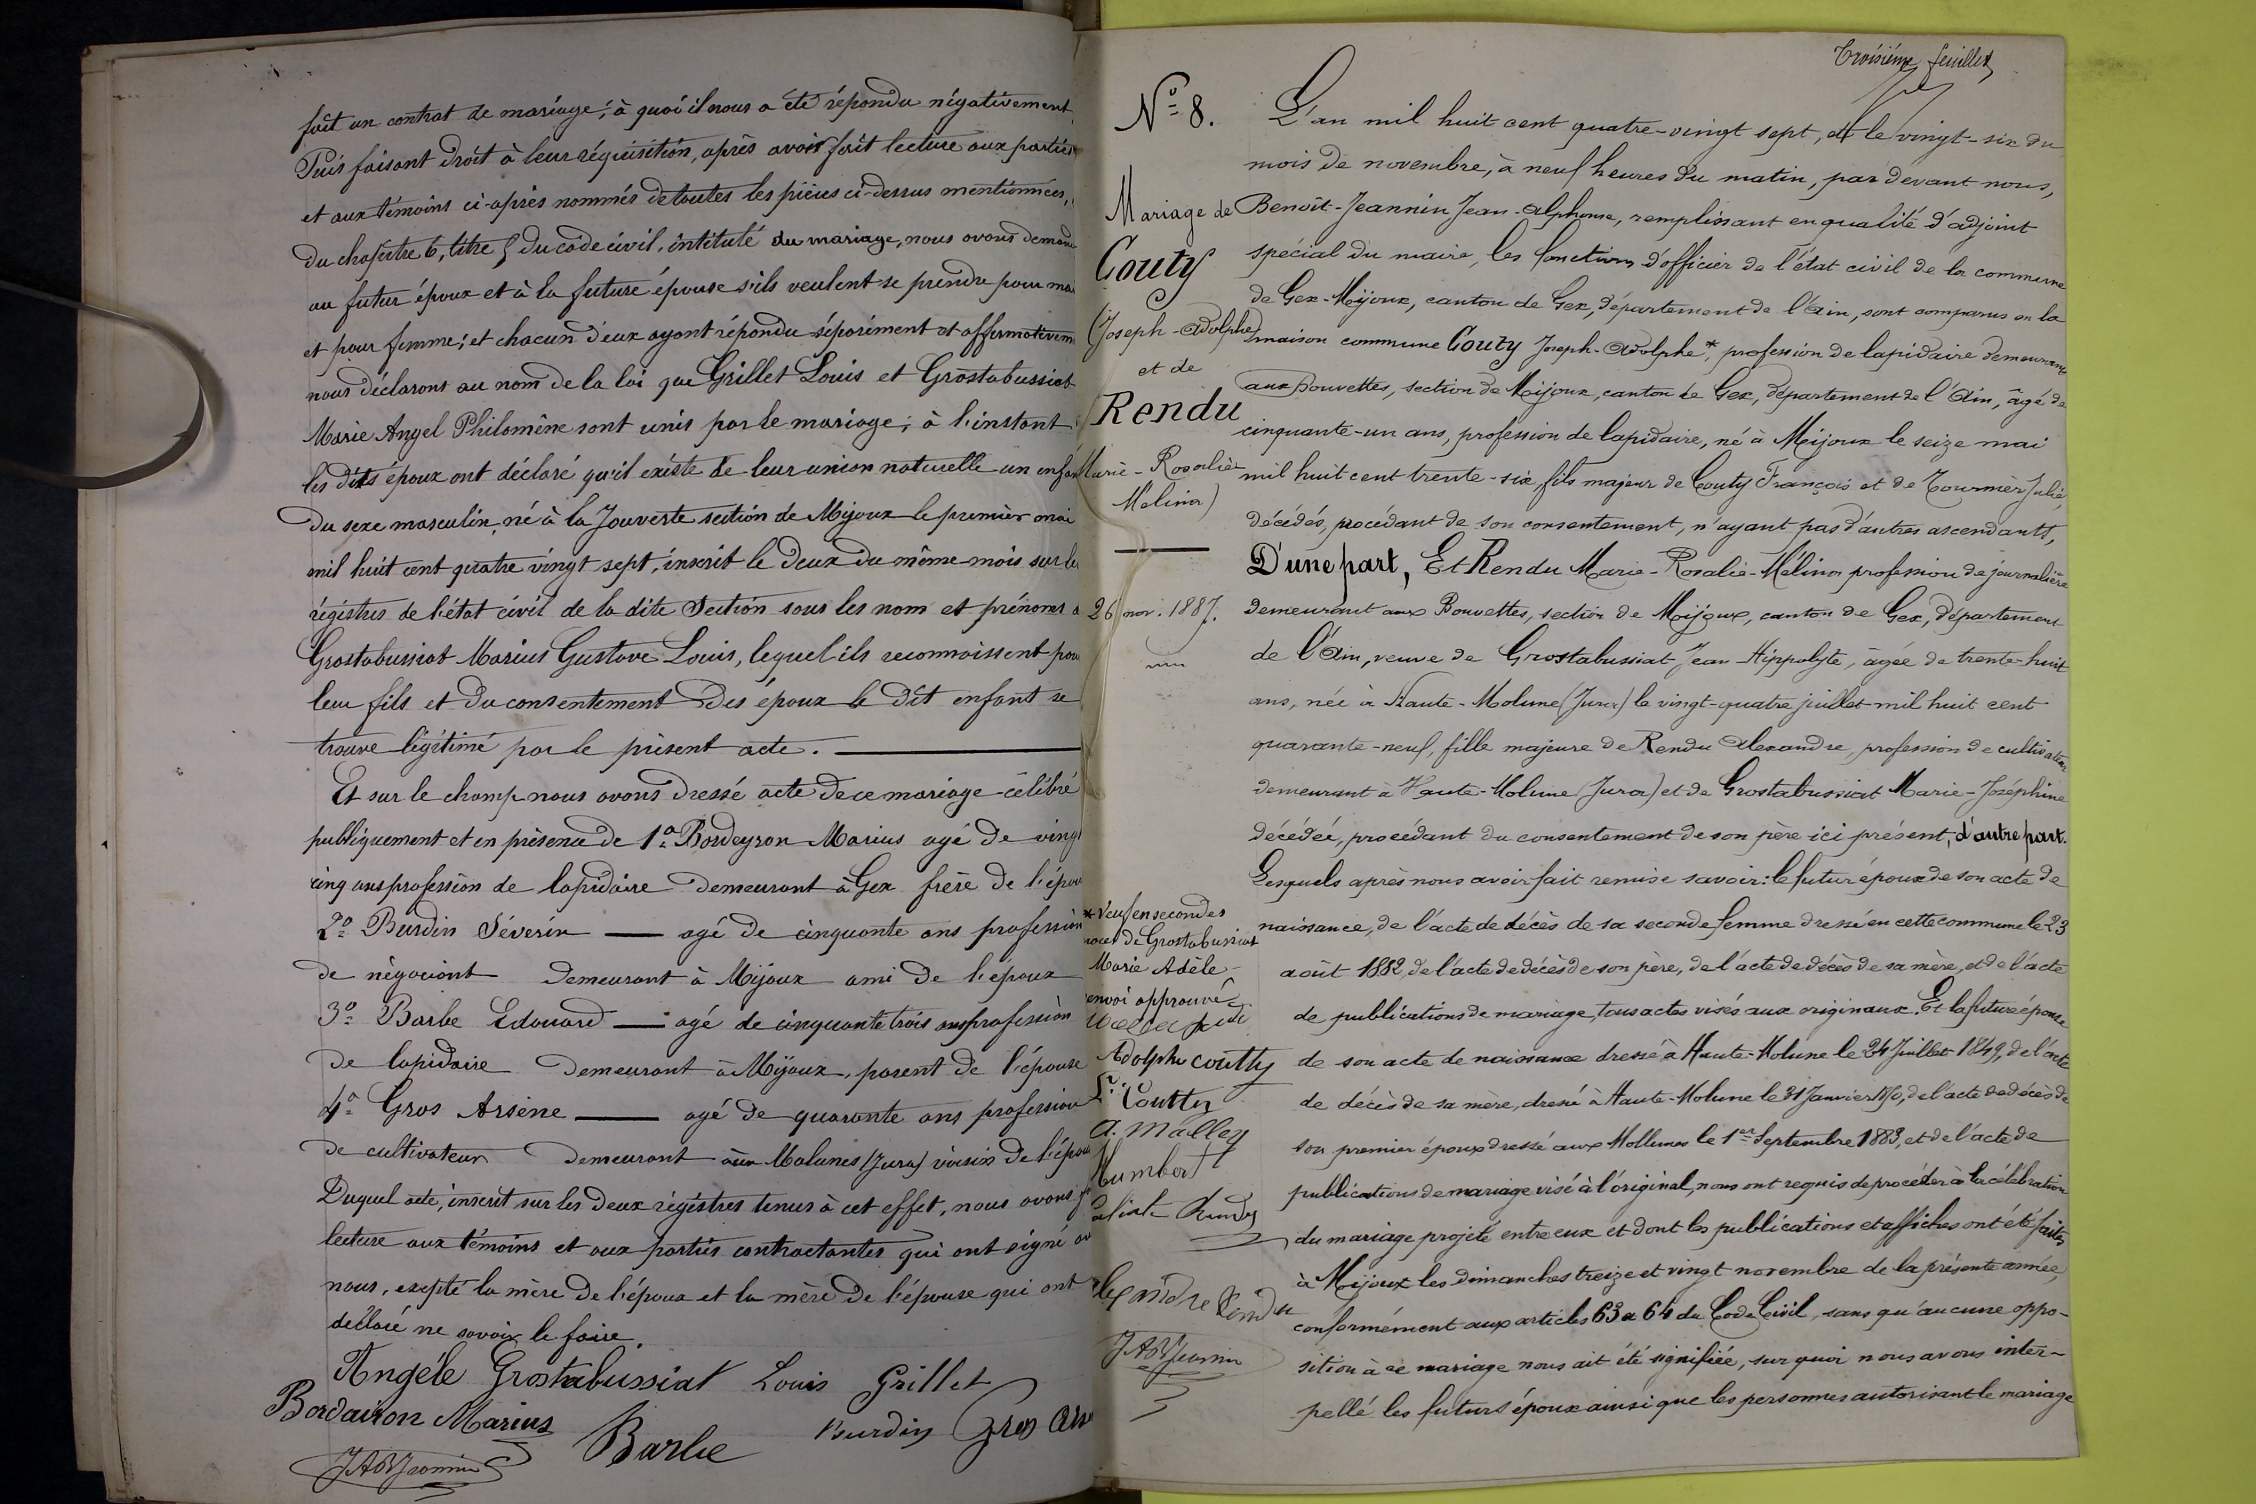 fait un contrat de mariage; à quoi il nous a été répondu négativement
Puis faisant droit à leur réquisition, après avoir fait lecture aux parties
et aux témoins ci-après nommés de toutes les pièces ci-dessus mentionnées,
du chapitre 6, titre 5 du code civil, intitulé du mariage, nous avons deman
au futur époux et à la future épouse s'ils veulent se prendre pour ma
et pour femme; et chacun d'eux ayant répondu séparément et affirmativem
nous déclarons au nom de la loi que Grillet Louis et Grostabussiat
Marie Angel Philomène sont unis par le mariage; à l'instant
les dits époux ont déclaré qu'il existe de leur union naturelle un enfan
du sexe masculin, né à la Jouverte section de Mijoux le premier mai
mil huit cent quatre vingt sept, inscrit le deux du même mois sur les
régistres de l'état civil de la dite Section sous les nom et prénoms d
Grostabussiat Marius Gustave Louis, lequel ils reconnaissent pour
leur fils et du consentement des époux le dit enfant se
trouve légitimé par le présent acte.
Et sur le champ nous avons dressé acte de ce mariage célébré
publiquement et en présence de 1º Bordeyron Marius agé de vingt
cinq ans profession de lapidaire demeurant à Gex frère de l'épou
2º Burdin Séverin agé de cinquante ans profession
de négociant demeurant à Mijoux ami de l'époux
3º Barbe Edouard agé de cinquante trois ans profession
de lapidaire demeurant à Mijoux, parent de l'épouse
4º Gros Arsène agé de quarante ans profession
de cultivateur demeurant aux Molunes (Jura) voisin de l'épou
Duquel acte, inscrit sur les deux régistres tenus à cet effet, nous avons
lecture aux témoins et aux parties contractantes qui ont signé av
nous, excepté la mère de l'époux et la mère de l'épouse qui ont
déclaré ne savoir le faire.
Angéle Grostabussiat Louis Grillet
Bordairon Marius Barbe Burdin Gros
JABJeannin
Troisième feuillet
Nº 8.
Mariage de
Couty
(Joseph-Adolphe)
et de
Rendu
Marie-Rosalie-
Mélina)
26 nov. 1887.
* Veuf en secondes
noces de Grostabussiat
Marie Adèle
renvoi approuvé
Adolphe coutty
Coutty
A. Malley
Humbert
Rendu
alexandre Rendu
JABJeannin
L'an mil huit cent quatre-vingt sept, et le vingt-six du
mois de novembre, à neuf heures du matin, par devant nous,
Benoit-Jeannin Jean-Alphonse, remplissant en qualité d'adjoint
spécial du maire, les fonctions d'officier de l'état civil de la commune
de Gex-Mijoux, canton de Gex, département de l'Ain, sont comparus en la
maison commune Couty Joseph-Adolphe*, profession de lapidaire demeurant
aux Bouvettes, section de Mijoux, canton de Gex, département de l'Ain, âgé de
cinquante-un ans, profession de lapidaire, né à Mijoux le seize mai
mil huit cent trente-six, fils majeur de Couty François et de Tournier Julie,
décédés, procédant de son consentement, n'ayant pas d'autres ascendants,
D'une part, Et Rendu Marie-Rosalie-Mélina profession de journalière
demeurant aux Bouvettes, section de Mijoux, canton de Gex, département
de l'Ain, veuve de Grostabussiat Jean-Hippolyte, âgée de trente-huit
ans, née à Haute-Molune (Jura) le vingt-quatre juillet mil huit cent
quarante-neuf, fille majeure de Rendu Alexandre, profession de cultivateur
demeurant à Haute-Molune (Jura) et de Grostabussiat Marie-Joséphine
décédée, procédant du consentement de son père ici présent, d'autre part.
Lesquels après nous avoir fait remise savoir: le futur époux de son acte de
naissance, de l'acte de décès de sa seconde femme dressé en cette commune le 23
août 1882, de l'acte de décès de son père, de l'acte de décès de sa mère, et de l'acte
de publications de mariage, tous actes visés aux originaux. Et la future épouse
de son acte de naissance dressé à Haute-Molune le 24 Juillet 1849, de l'acte
de décès de sa mère, dressé à Haute-Molune le 31 Janvier, de l'acte de décès de
son premier époux dressé aux Mollunes le 1er Septembre 1883, et de l'acte de
publications de mariage visé à l'original, nous ont requis de procéder à la célébration
du mariage projeté entre eux et dont les publications et affiches ont été faites
à Mijoux les dimanches treize et vingt novembre de la présente année,
conformément aux articles 63 à 64 du Code Civil, sans qu'aucune oppo-
sition à ce mariage nous ait été signifiée, sur quoi nous avons inter-
pellé les futurs époux ainsi que les personnes autorisant le mariage